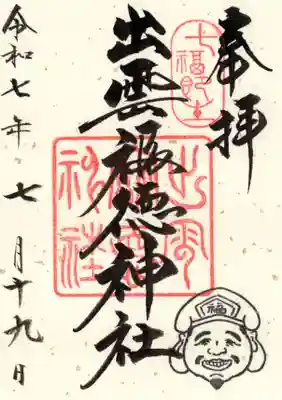 奉拝
七福神
出雲福徳神社
令和七年七月十九日
福